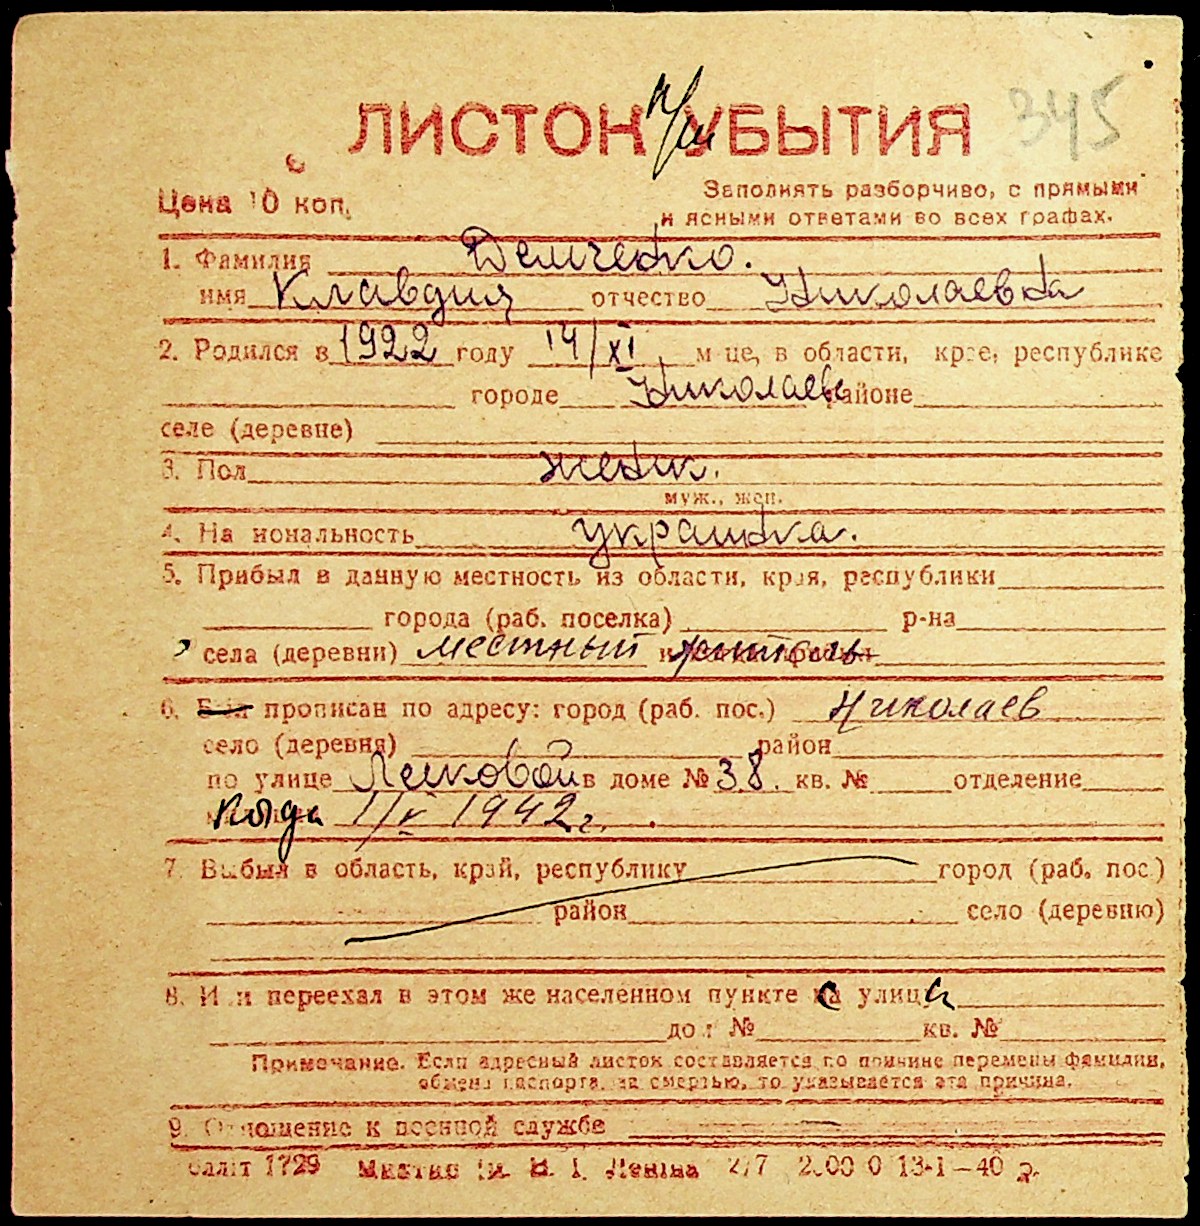 345
ЛИСТОК УБЫТИЯ
Цена 10 коп.
Заполнять разборчиво, с прямыми
и ясными ответами во всех графах.
1. Фамилия Демченко.
имя Клавдия отчество Николаевна
2. Родился в 1922 году 14/XI м-це, в области, крае, республике
городе Николаев районе
селе (деревне)
3. Пол женск.
муж., жен.
4. Национальность украинка.
5. Прибыл в данную местность из области, края, республики
города (раб. поселка) р-на
села (деревни) местный житель
6. Был прописан по адресу: город (раб. пос.) Николаев
село (деревня) район
по улице в доме № 38. кв. № отделение
когда 1/V 1942 г.
7. Выбыл в область, край, республику город (раб. пос.)
район село (деревню)
8. Или переехал в этом же населенном пункте с улица
дом № кв. №
Примечание. Если адресный листок составляется по причине перемены фамилии,
обмена паспорта, за смертью, то указывается эта причина.
9. Отношение к военной службе
1729 Ленiна 277 13-1-40 р.